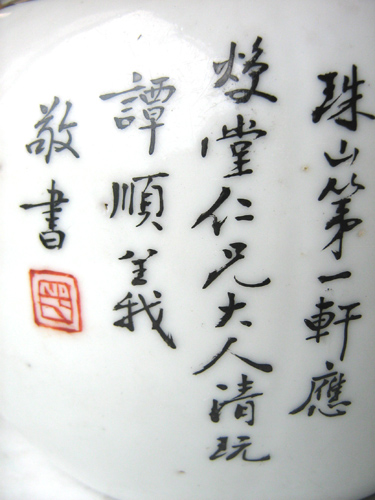 珠山第一軒應
煥堂仁兄大人清玩
譚順義
敬書